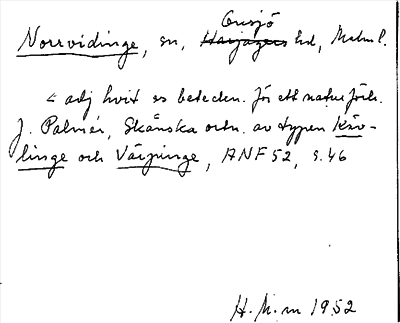 Onsjö
Norrvidinge, sn, Harjagers hd, Malm l.
< adj hvit es beteckn. för ett naturförh.
J. Palmér, Skånska ortn. av typen Käv-
linge och Värpinge, ANF 52, s. 46
H. M-m 1952